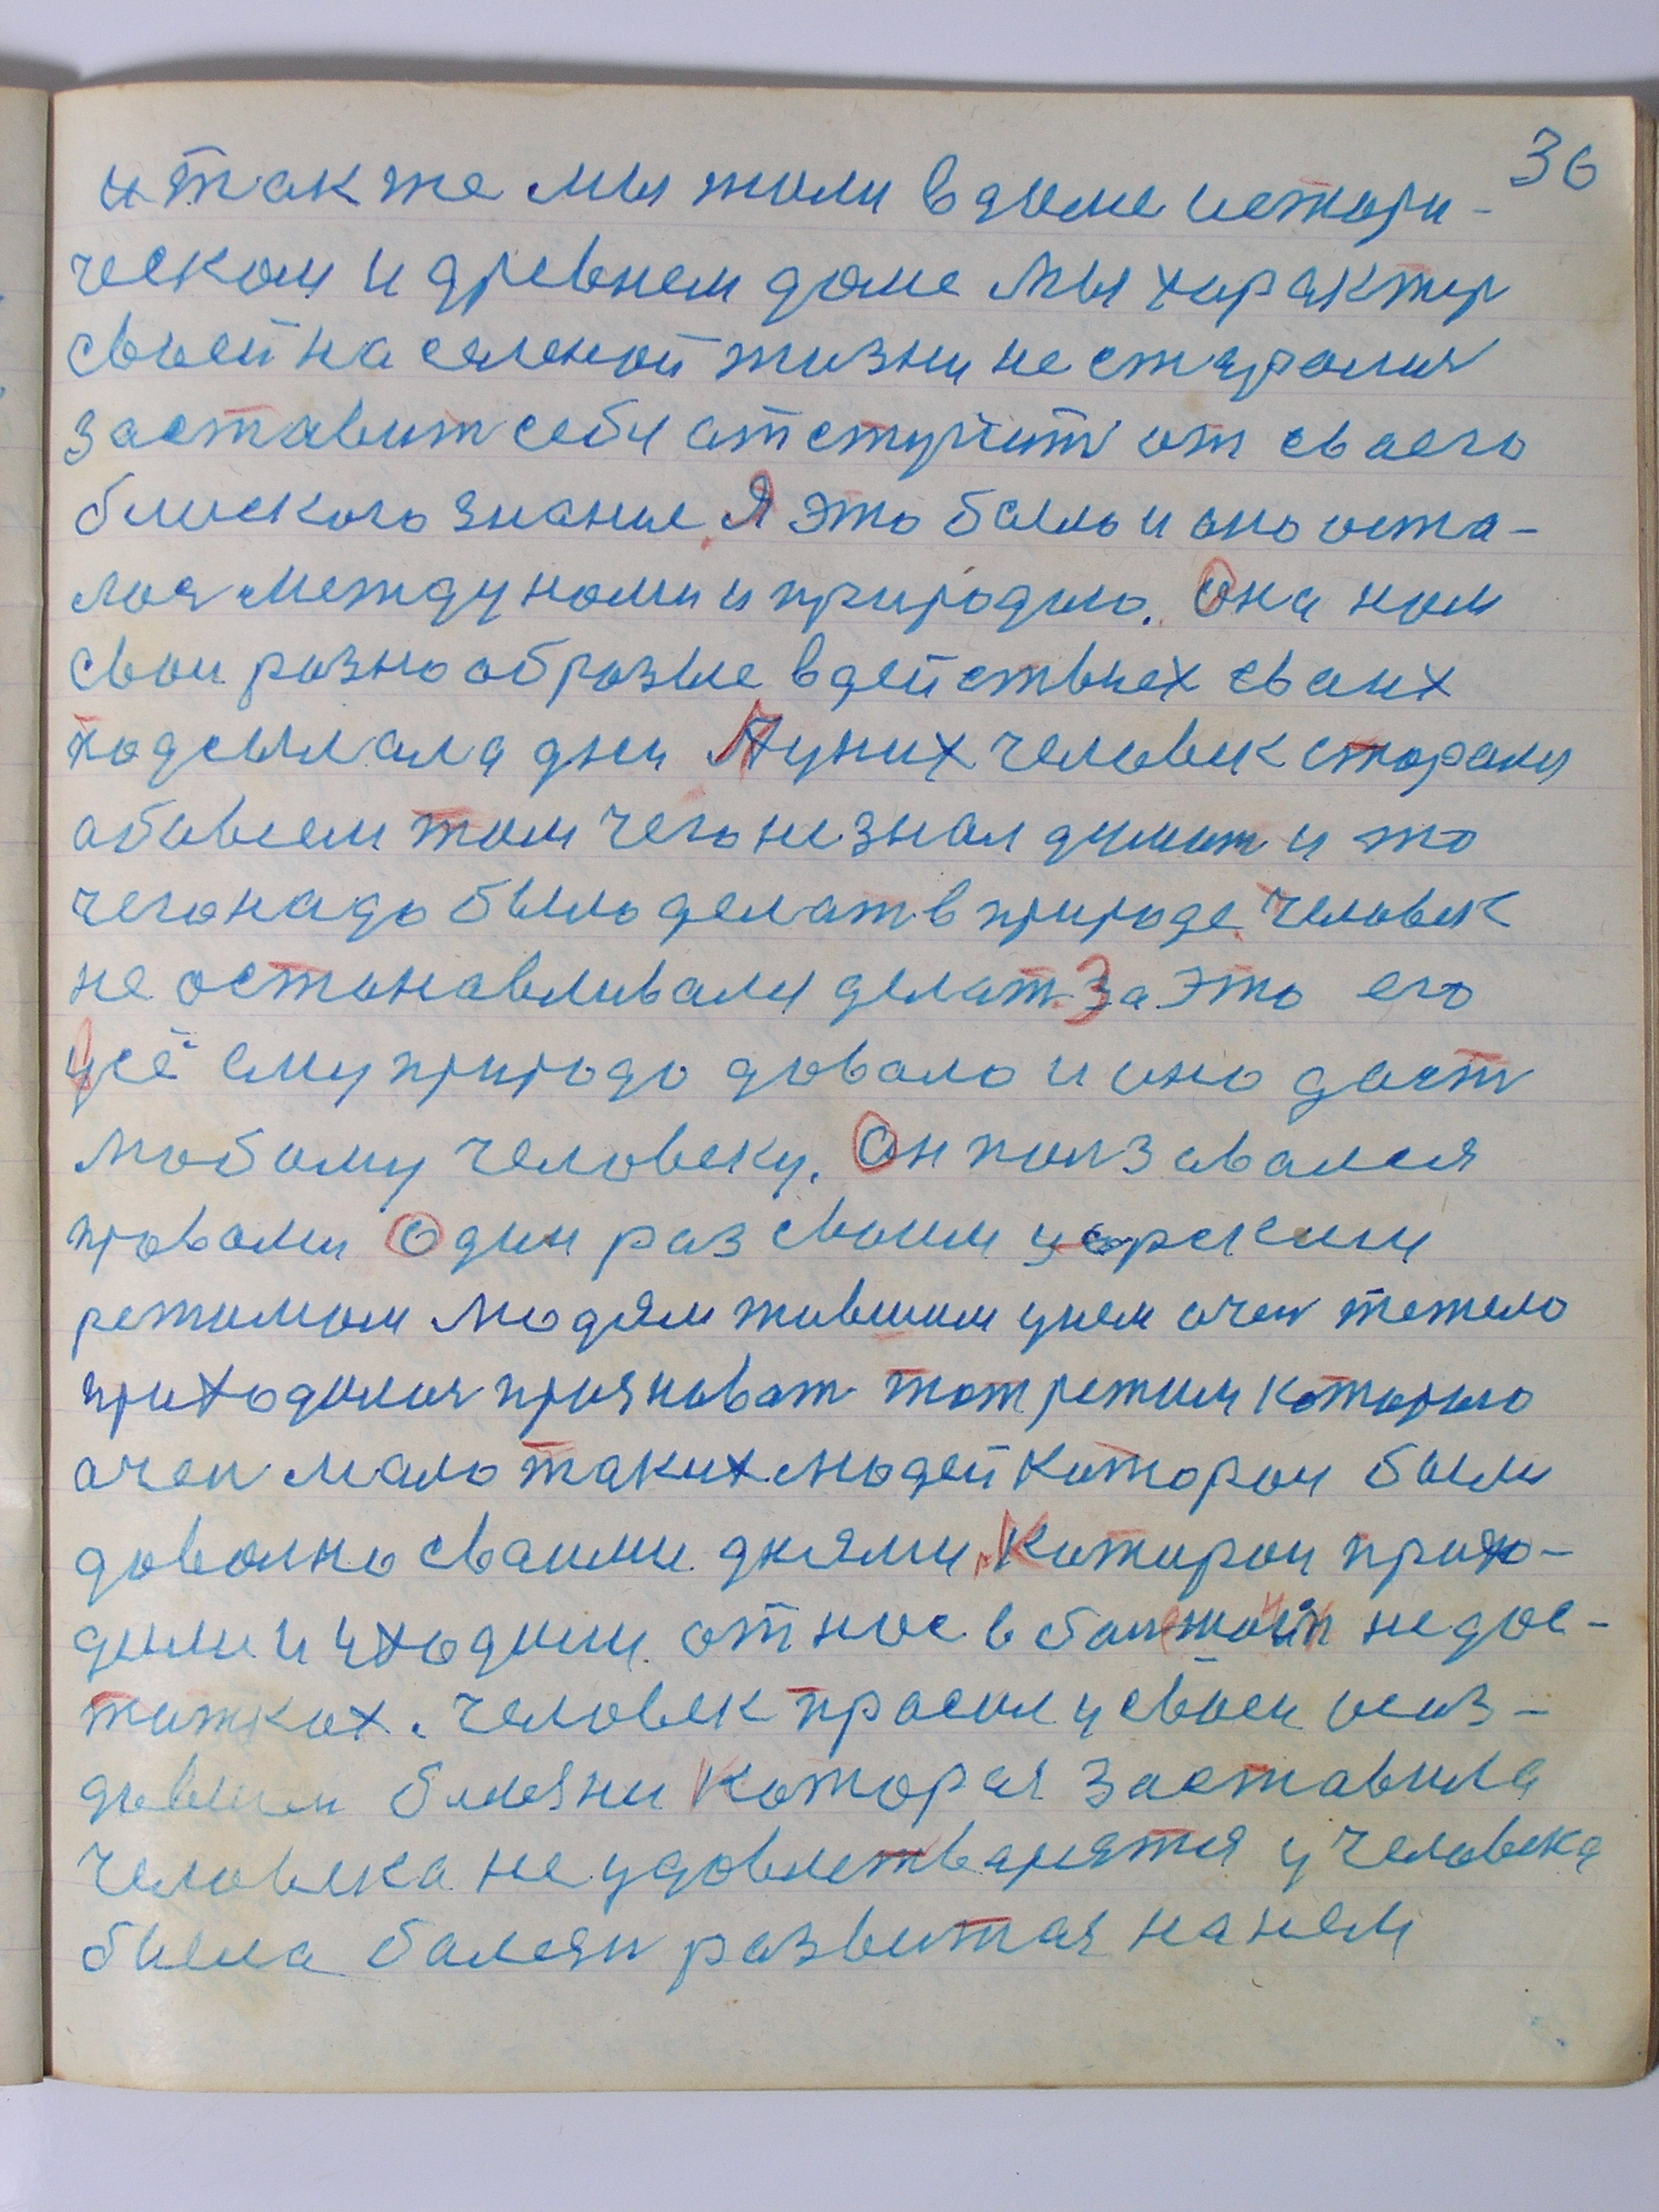 36
и так же мы жили в доме истори-
ческом и древнем доме мы характер
своей население жизни не старалия
заставит себя отступит от сваего
блиского знание. А это было и оно оста-
лоя между номи и природою. Она ном
свои разнообразие в действиех сваих
подсылала дни А у них человек сторался
обо всем том чего не знал думат и то
чего надо было делат в природе. Человек
не останавливался делат. За это его
усё ему природо довало и оно даст
любому человеку. Он ползавался
провами Один раз своим царским
режимом людям жившим у нем очен тежело
приходилоя признават тот режим которого
очен мало таких людей которои были
доволно сваими днями. Которои прихо-
дили и уходили от нос в недос-
татках. Человек просил у своеи
болезни Которая заставила
человека не удовлетварятся у человека
была балезн развитая на нем